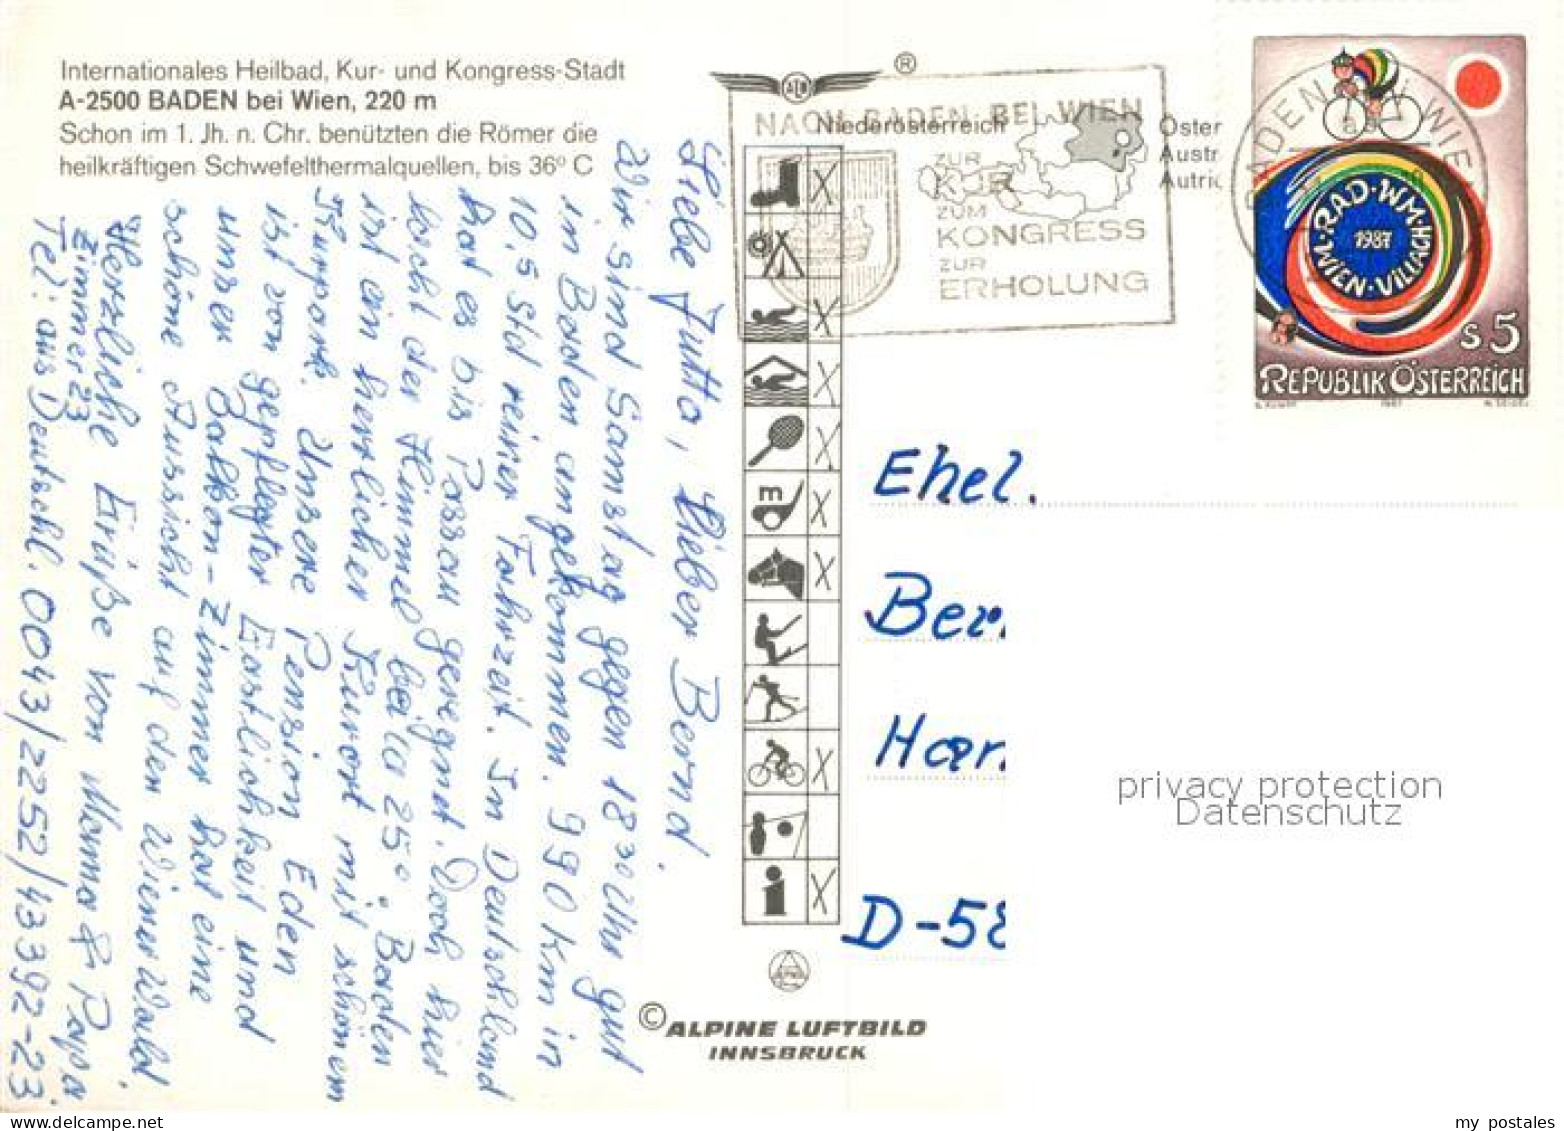 Internationales Heilbad, Kur- und Kongress-Stadt
A-2500 BADEN bei Wien, 220 m
Schon im 1. Jh. n. Chr. benützten die Römer die
heilkräftigen Schwefelthermalquellen, bis 36° C
Liebe Jutta, lieber Bernd.
Wir sind Samstag gegen 18³⁰ Uhr gut
in Baden angekommen. 990 Km in
10,5 Std reiner Fahrzeit. In Deutschland
hat es bis Passau geregnet. Doch hier
lacht der Himmel bei 25°. Baden
ist ein herrlicher Kurort mit schönem
Kurpark. Unsere Pension Eden
ist von gepflegter Gastlichkeit und
unser Balkon-Zimmer hat eine
schöne Aussicht auf den Wienerwald.
Herzliche Grüße von Mama & Papa
Zimmer 23
Tel: aus Deutschl. 0043/2252/43392-23
®
NACH BADEN BEI WIEN
ZUR
KUR
ZUM
KONGRESS
ZUR
ERHOLUNG
Niederösterreich
Öster
Austr
Autric
BADEN WIEN
RAD·WM·
1987
WIEN·VILLACH
S 5
REPUBLIK ÖSTERREICH
1987
m
i
Ehel.
Ber
Han
D-58
privacy protection
Datenschutz
© ALPINE LUFTBILD
INNSBRUCK
my postales